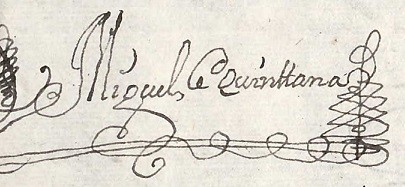 Miguel de Quinttana